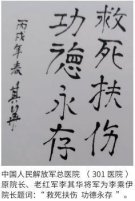 救死扶伤
功德永存
丙戌年春 其华
中国人民解放军总医院（301医院）
原院长、老红军李其华将军为李乘伊
院长题词：“救死扶伤 功德永存”。